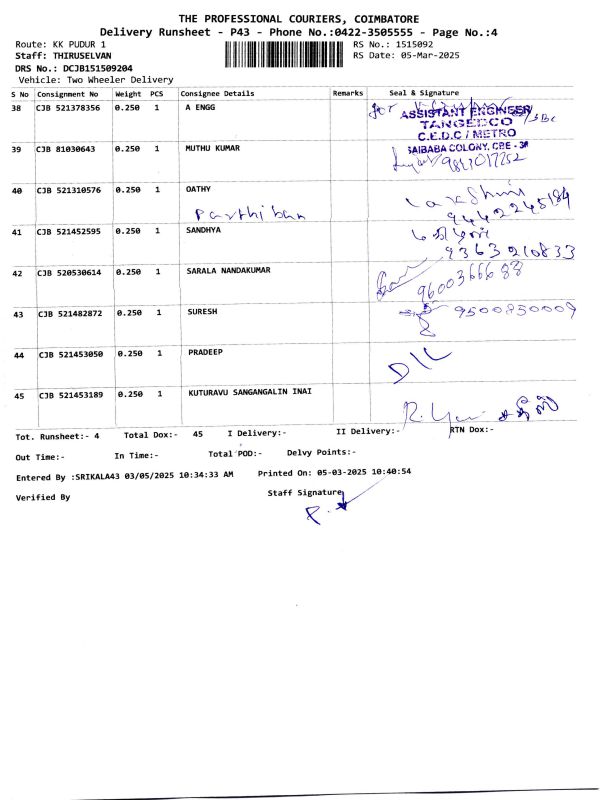 THE PROFESSIONAL COURIERS, COIMBATORE
Delivery Runsheet - P43 - Phone No.:0422-3505555 - Page No.:4
Route: KK PUDUR 1 RS No.: 1515092
Staff: THIRUSELVAN RS Date: 05-Mar-2025
DRS No.: DCJB151509204
Vehicle: Two Wheeler Delivery
S No Consignment No Weight PCS Consignee Details Remarks Seal & Signature
38 CJB 521378356 0.250 1 A ENGG for
ASSISTANT ENGINEER
TANGEDCO
C.E.D.C / METRO
SAIBABA COLONY. CBE -
39 CJB 81030643 0.250 1 MUTHU KUMAR
40 CJB 521310576 0.250 1 OATHY Lakshmi
Parthiban 9442245184
41 CJB 521452595 0.250 1 SANDHYA
9363210833
42 CJB 520530614 0.250 1 SARALA NANDAKUMAR
9600366688
43 CJB 521482872 0.250 1 SURESH 9500850009
44 CJB 521453050 0.250 1 PRADEEP D/L
45 CJB 521453189 0.250 1 KUTURAVU SANGANGALIN INAI
Tot. Runsheet:- 4 Total Dox:- 45 I Delivery:- II Delivery:- RTN Dox:-
Out Time:- In Time:- Total POD:- Delvy Points:-
Entered By :SRIKALA43 03/05/2025 10:34:33 AM Printed On: 05-03-2025 10:40:54
Verified By Staff Signature